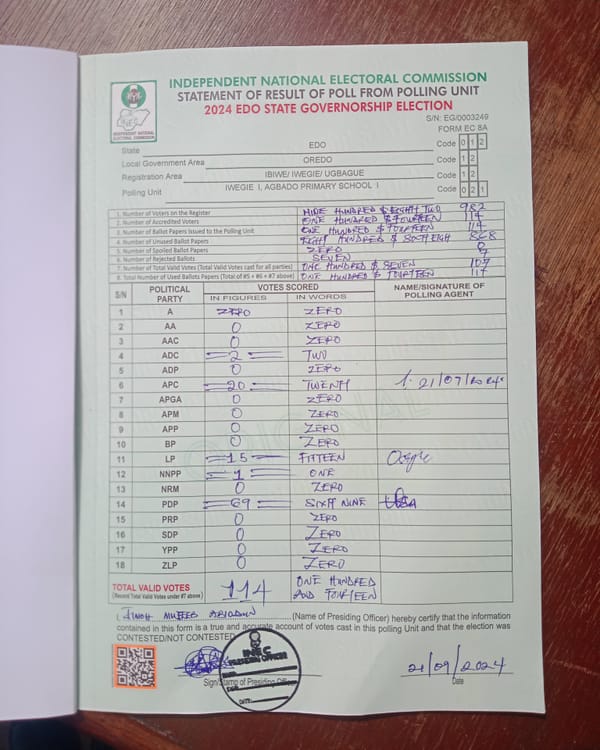 INDEPENDENT NATIONAL ELECTORAL COMMISSION
STATEMENT OF RESULT OF POLL FROM POLLING UNIT
2024 EDO STATE GOVERNORSHIP ELECTION
S/N: EG/0003249
FORM EC 8A
INDEPENDENT NATIONAL ELECTORAL COMMISSION
State EDO Code 0 1 2
Local Government Area OREDO Code 1 2
Registration Area IBIWE/ IWEGIE/ UGBAGUE Code 1 2
Polling Unit IWEGIE I, AGBADO PRIMARY SCHOOL I Code 0 2 1
1. Number of Voters on the Register NINE HUNDRED & EIGHTY TWO 982
2. Number of Accredited Voters ONE HUNDRED & FOURTEEN 114
3. Number of Ballot Papers Issued to the Polling Unit ONE HUNDRED & FOURTEEN 114
4. Number of Unused Ballot Papers EIGHT HUNDRED & 868
5. Number of Spoiled Ballot Papers ZERO 0
6. Number of Rejected Ballots SEVEN 7
7. Number of Total Valid Votes (Total Valid Votes cast for all parties) ONE HUNDRED & SEVEN 107
8. Total Number of Used Ballots Papers (Total of #5 + #6 + #7 above) ONE HUNDRED & FOURTEEN 114
S/N POLITICAL PARTY VOTES SCORED NAME/SIGNATURE OF POLLING AGENT
IN FIGURES IN WORDS
1 A ZERO ZERO
2 AA 0 ZERO
3 AAC 0 ZERO
4 ADC =2= TWO
5 ADP 0 ZERO
6 APC =20= TWENTY
7 APGA 0 ZERO
8 APM 0 ZERO
9 APP 0 ZERO
10 BP 0 ZERO
11 LP =15= FIFTEEN
12 NNPP =1= ONE
13 NRM 0 ZERO
14 PDP =69= SIXTY NINE
15 PRP 0 ZERO
16 SDP 0 ZERO
17 YPP 0 ZERO
18 ZLP 0 ZERO
TOTAL VALID VOTES 114 ONE HUNDRED
(Record Total Valid Votes under #7 above) AND FOURTEEN
I, (Name of Presiding Officer) hereby certify that the information
contained in this form is a true and accurate account of votes cast in this polling Unit and that the election was
CONTESTED/NOT CONTESTED
INEC
PRESIDING OFFICER
DATE:
21/09/2024
Sign/Stamp of Presiding Officer Date